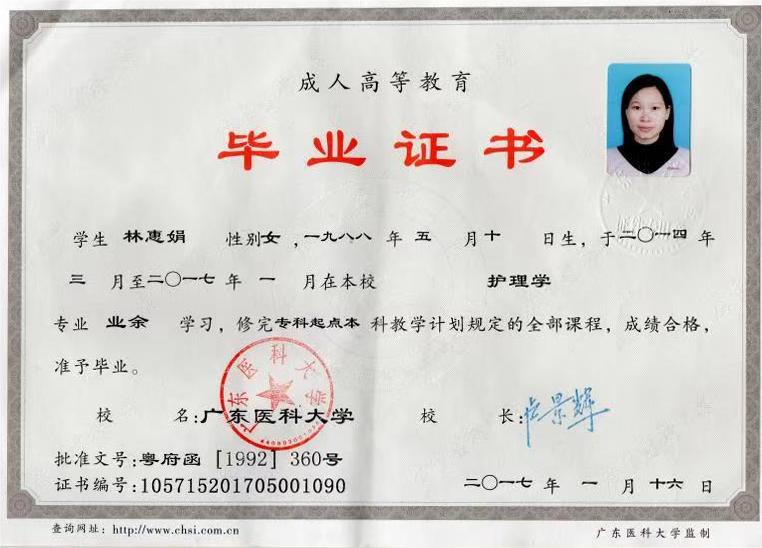 成人高等教育
毕业证书
学生 林惠娟 性别女，一九八八 年 五 月十 日生，于二〇一四 年
三 月至二〇一七 年 一 月在本校 护理学
专业 业余 学习，修完专科起点本 科教学计划规定的全部课程，成绩合格，
准予毕业。
广东医科大学
校 名：广东医科大学 校 长：
批准文号：粤府函［1992］360号
证书编号：105715201705001090 二〇一七 年 一 月 十六 日
查询网址：http://www.chsi.com.cn 广东医科大学监制